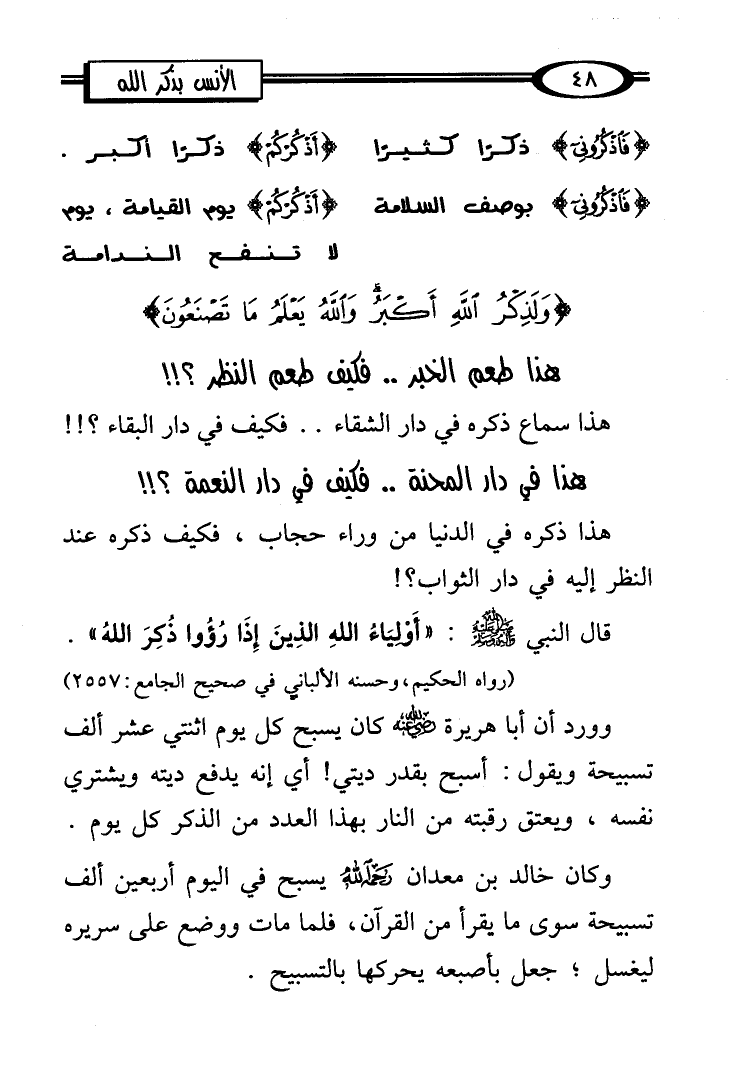 ٤٨
الأنس بذكر الله
﴿فَاذْكُرُونِي﴾ ذكرًا كثيرًا ﴿أَذْكُرْكُمْ﴾ ذكرًا أكبر .
﴿فَاذْكُرُونِي﴾ بوصف السلامة ﴿أَذْكُرْكُمْ﴾ يوم القيامة ، يوم
لا تنفع الندامة
﴿وَلَذِكْرُ ٱللَّهِ أَكْبَرُ ۗ وَٱللَّهُ يَعْلَمُ مَا تَصْنَعُونَ﴾
هذا طعم الخبر .. فكيف طعم النظر ؟!!
هذا سماع ذكره في دار الشقاء .. فكيف في دار البقاء ؟!!
هذا في دار المحنة .. فكيف في دار النعمة ؟!!
هذا ذكره في الدنيا من وراء حجاب ، فكيف ذكره عند
النظر إليه في دار الثواب؟!
قال النبي ﷺ : «أَوْلِيَاءُ اللهِ الذِينَ إِذَا رُؤُوا ذُكِرَ اللهُ» .
(رواه الحكيم، وحسنه الألباني في صحيح الجامع: ٢٥٥٧)
وورد أن أبا هريرة رضي الله عنه كان يسبح كل يوم اثنتي عشر ألف
تسبيحة ويقول : أسبح بقدر ديتي! أي إنه يدفع ديته ويشتري
نفسه ، ويعتق رقبته من النار بهذا العدد من الذكر كل يوم .
وكان خالد بن معدان رحمه الله يسبح في اليوم أربعين ألف
تسبيحة سوى ما يقرأ من القرآن، فلما مات ووضع على سريره
ليغسل ؛ جعل بأصبعه يحركها بالتسبيح .